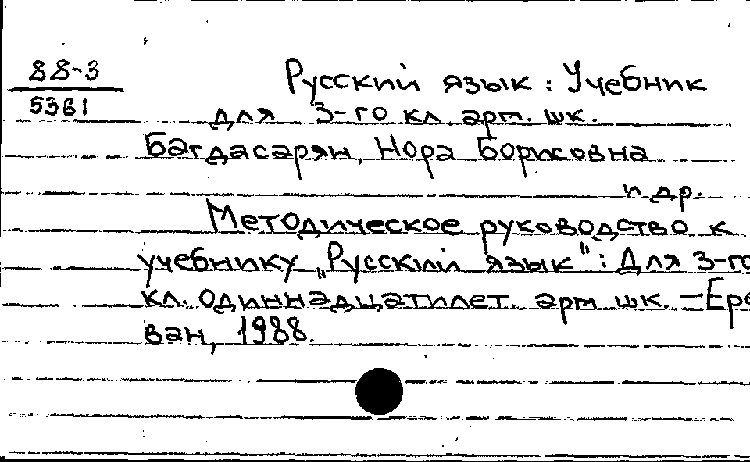 88-3
5361
Русский язык : Учебник
для 3-го кл. арм. шк.
Багдасарян, Нора Борисовна
и др.
Методическое руководство к
учебнику „Русский язык“ : Для 3-го
кл. одиннадцатилет. арм шк. – Ере
ван, 1988.